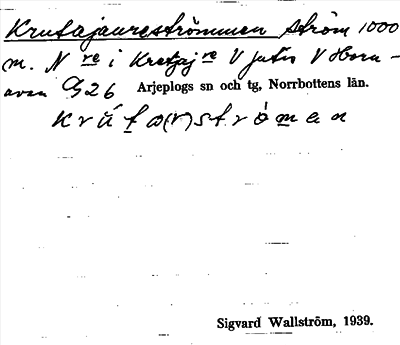 Krutajaureströmmen ström 1000
m. N re i Kretjaj re V jutis V Horn-
avan G 26 Arjeplogs sn och tg, Norrbottens län.
k r ú t a(r) s t r ö̀ m e n
Sigvard Wallström, 1939.